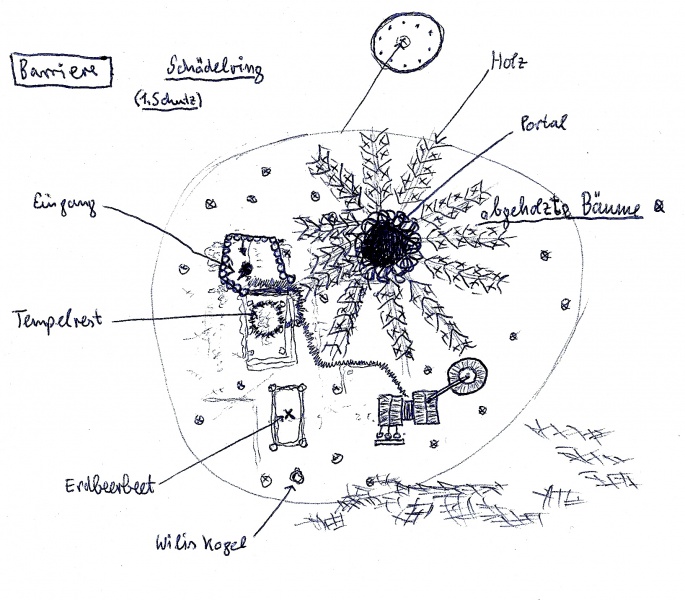 Barriere
Schädelring
(1. Schutz)
Holz
Portal
Eingang
abgeholzte Bäume
Tempelrest
Erdbeerbeet
Wilis Kogel